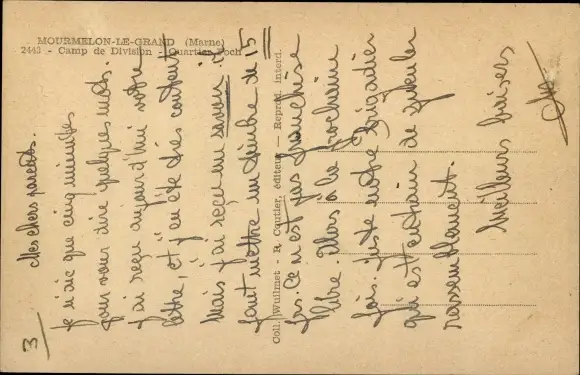 MOURMELON-LE-GRAND (Marne)
2443 - Camp de Division - Quartier Foch
Coll. Wuilmet - R. Gautier, éditeur — Reprod. interd.
3
Mes chers parents.
je n'aie que cinq minutes
pour vous dire quelques mots.
J'ai reçu aujourd'hui votre
lettre, et j'en été très content
Mais j'ai reçu un savon : il
faut mettre un timbre de 15
frs. Ce n'est pas franchise
libre. Alors à la prochaine
fois. juste notre Brigadier
qui est entrain de gueuler
rassemblement.
Meilleurs baisers